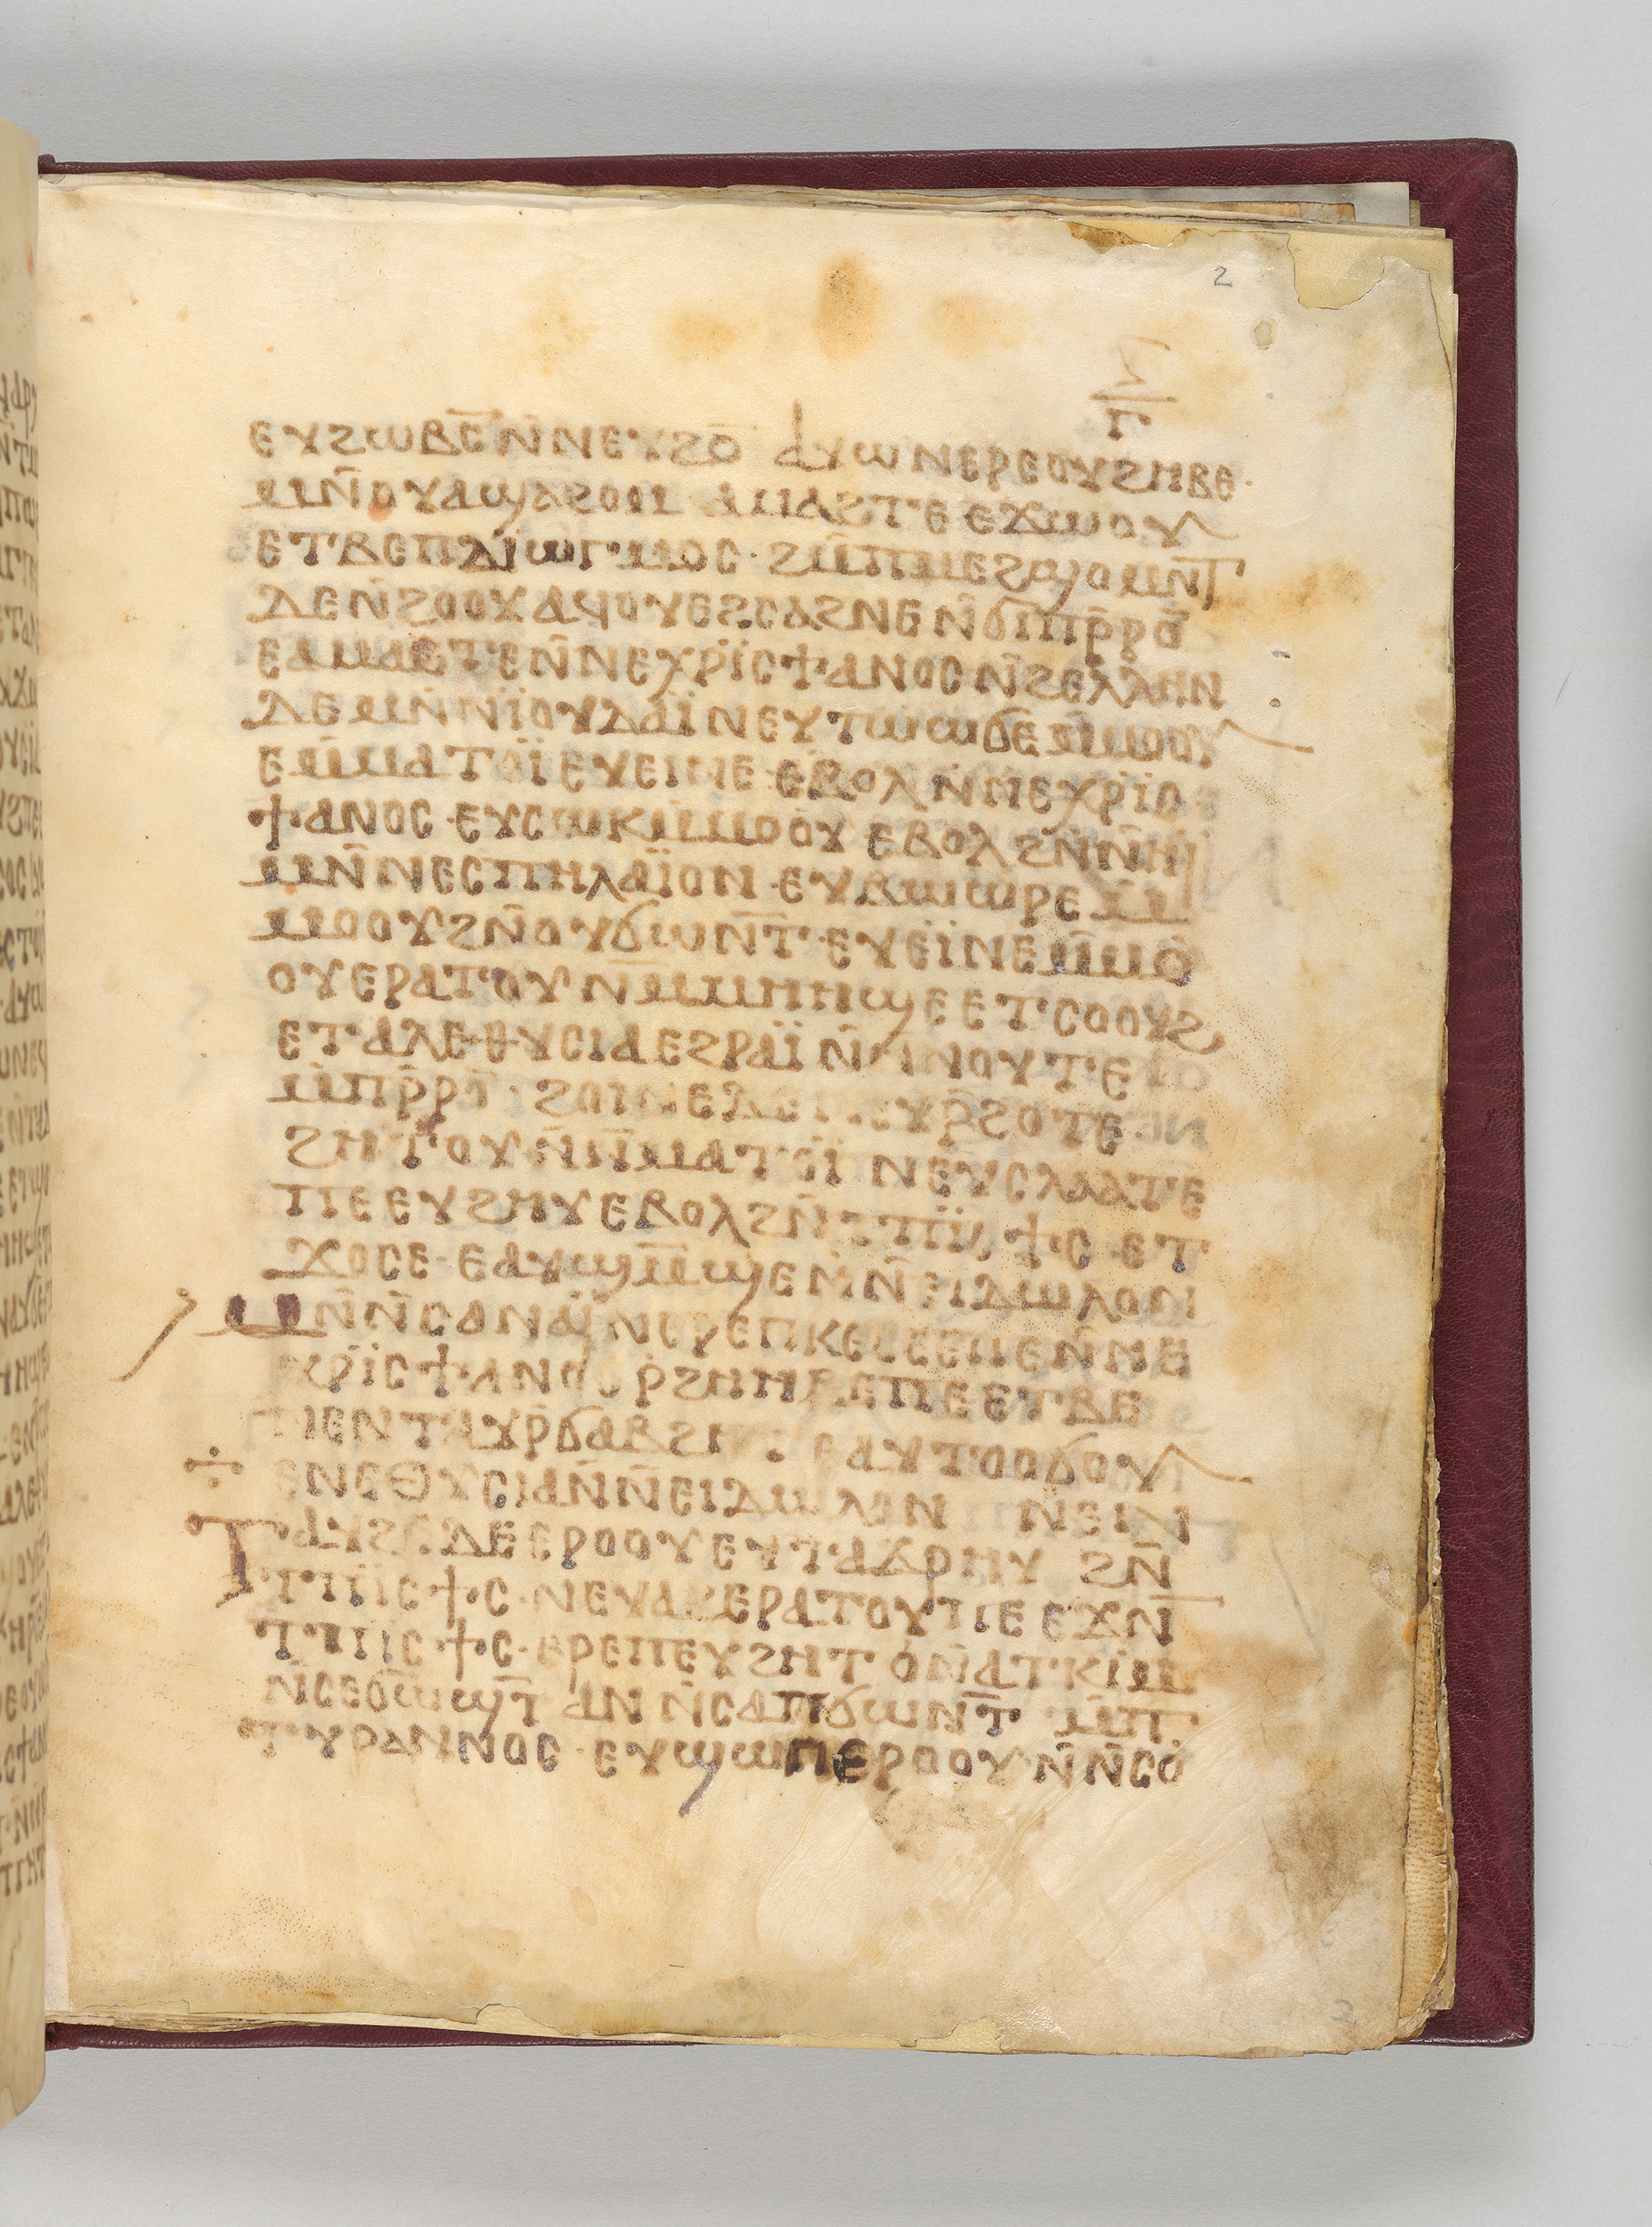 2
ⲅ
ⲉⲩϩⲱⲃⲥ̄ⲛ̄ⲛⲉⲩϩⲟ̄ ⲁⲩⲱⲛⲉⲣⲉⲟⲩϩⲏⲃⲉ·
ⲙⲛ̄ⲟⲩⲁϣⲁϩⲟⲙ ⲁⲙⲁϩⲧⲉⲉϫⲱⲟⲩ
ⲉⲧⲃⲉⲡⲇⲓⲱⲅⲙⲟⲥ· ϩⲙ̄ⲡⲙⲉϩϣⲟⲙⲛ̄ⲧ
ⲇⲉⲛ̄ϩⲟⲟⲩⲁϥⲟⲩⲉϩⲥⲁϩⲛⲉⲛ̄ϭⲓⲡⲣ̄ⲣⲟ̄
ⲉⲁⲙⲁϩⲧⲉⲛ̄ⲛⲉⲭⲣⲓ̈ⲥϯⲁⲛⲟⲥ ⲛ̄ϩⲉⲗⲗⲏⲛ
ⲇⲉⲙⲛ̄ⲛⲓ̈ⲟⲩⲇⲁⲓ̈ ⲛⲉⲩⲧⲱⲱϭⲉⲙ̄ⲙⲟⲟⲩ
ⲉⲙ̄ⲙⲁⲧⲟⲓ̈ⲉⲩⲉⲓⲛⲉ ⲉⲃⲟⲗⲛ̄ⲛⲉⲭⲣⲓ̈ⲥ
ϯⲁⲛⲟⲥ·ⲉⲩⲥⲱⲕⲙ̄ⲙⲟⲟⲩ ⲉⲃⲟⲗϩⲛ̄ⲛ̄ⲏⲓ
ⲙⲛ̄ⲛⲉⲥⲡⲏⲗⲁⲓ̈ⲟⲛ·ⲉⲩⲗⲱⲱⲣⲉⲙ̄
ⲙⲟⲟⲩϩⲛ̄ⲟⲩϭⲱⲛ̄ⲧ·ⲉⲩⲉⲓ̈ⲛⲉⲙ̄ⲙⲟ
ⲟⲩⲉⲣⲁⲧⲟⲩⲛ̄ⲙⲙⲏⲏϣⲉⲉⲧⲥⲟⲟⲩϩ
ⲉⲧⲁⲗⲉⲑⲩⲥⲓⲁⲉϩⲣⲁⲓ̈ ⲛ̄ⲛⲛⲟⲩⲧⲉ
ⲙ̄ⲡⲣ̄ⲣⲟ̄· ϩⲟⲓⲛⲉⲇⲉ ⲉⲩⲣ̄ϩⲟⲧⲉ
ϩⲏⲧⲟⲩⲛ̄ⲛ̄ⲙⲁⲧⲟⲓ̈ ⲛⲉⲩⲥⲗⲁⲁⲧⲉ
ⲡⲉⲉⲩϩⲏⲩⲉⲃⲟⲗϩⲛ̄ⲧⲡⲓ̈ⲥϯⲥ ⲉⲧ
ϫⲟⲥⲉ·ⲉⲁⲩϣⲙ̄ϣⲉⲛ̄ⲛ̄ⲉⲓⲇⲱⲗⲟⲛ
ⲙⲛ̄ⲛ̄ⲥⲁⲛⲁⲓ̈ⲛⲉⲣⲉⲡⲕⲉⲥⲉⲉⲡⲉⲛ̄ⲛⲉ
ⲭⲣⲓ̈ⲥϯⲁⲛⲟⲥ ⲣ̄ϩⲏⲏⲃⲉⲡⲉⲉⲧⲃⲉ
ⲛⲉⲛⲧⲁⲩⲣ̄ϭⲁⲃϩⲏⲧ· ⲉⲁⲩⲧⲟⲟϭⲟⲩ
ⲉⲛⲉⲑⲩⲥⲓⲁⲛ̄ⲛ̄ⲉⲓⲇⲱⲗⲟⲛ ⲛⲉⲛ
ⲧⲁⲩϩⲉ ⲇⲉⲉⲣⲟⲟⲩⲉⲩⲧⲁϫⲣⲏⲩ ϩⲛ̄
ⲧⲡⲓ̈ⲥϯⲥ·ⲛⲉⲩⲁϩⲉⲣⲁⲧⲟⲩⲡⲉ ⲉϫⲛ̄
ⲧⲡⲓⲥϯⲥ·ⲉⲣⲉⲡⲉⲩϩⲏⲧ ⲟ̇ⲛ̄ⲁⲧⲕⲓⲙ
ⲛ̄ⲥⲉϭⲱ̄ϣⲧ̄ ⲁⲛ ⲛ̄ⲥⲁⲡϭⲱⲛ̄ⲧ ⲙ̄ⲡ
ⲧⲩⲣⲁⲛⲛⲟⲥ·ⲉⲩϣⲱⲡⲉⲣⲟⲟⲩ·ⲛ̄ⲛ̄ⲥⲟ̇
2